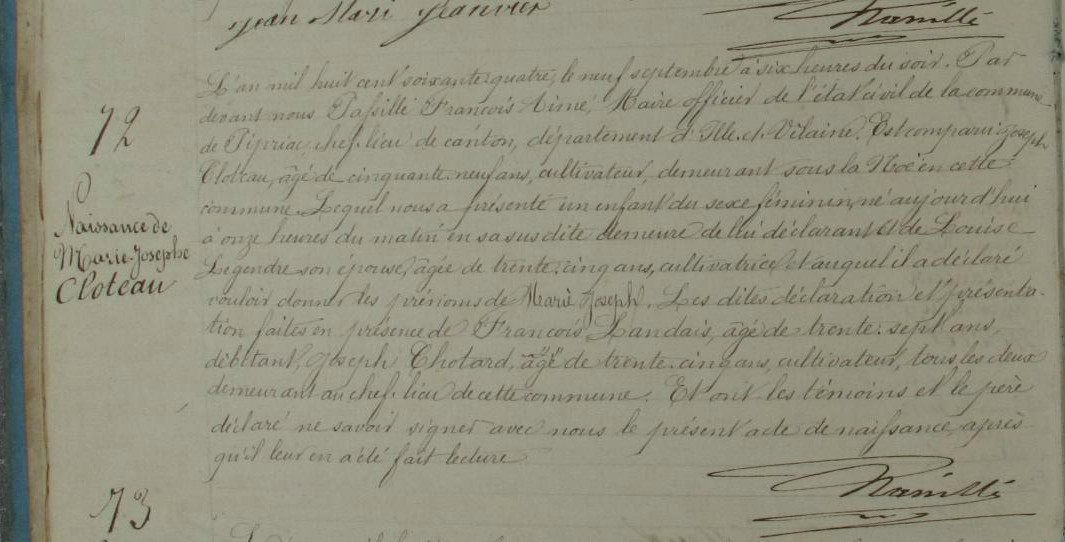 Jean Mari Jeanvier
72
Naissance de
Marie-Josephe
Cloteau
L'an mil huit cent soixante-quatre, le neuf septembre à six heures du soir. Par
devant nous François Aimé, Maire officier de l'état civil de la commune
de Pipriac, chef-lieu de canton, département d'Ille-et-Vilaine. Est comparu Joseph
Cloteau, âgé de cinquante-neuf ans, cultivateur, demeurant sous la Noë en cette
commune. Lequel nous a présenté un enfant du sexe féminin, né aujourd'hui
à onze heures du matin en sa susdite demeure de lui déclarant et de Louise
Legendre son épouse, âgée de trente-cinq ans, cultivatrice, et auquel il a déclaré
vouloir donner les prénoms de Marie Joseph. Les dites déclaration et présenta-
tion faites en présence de François Landais, âgé de trente-sept ans,
débitant, Joseph Chotard, âgé de trente-cinq ans, cultivateur, tous les deux
demeurant au chef-lieu de cette commune. Et ont les témoins et le père
déclaré ne savoir signer avec nous le présent acte de naissance, après
qu'il leur en a été fait lecture
73